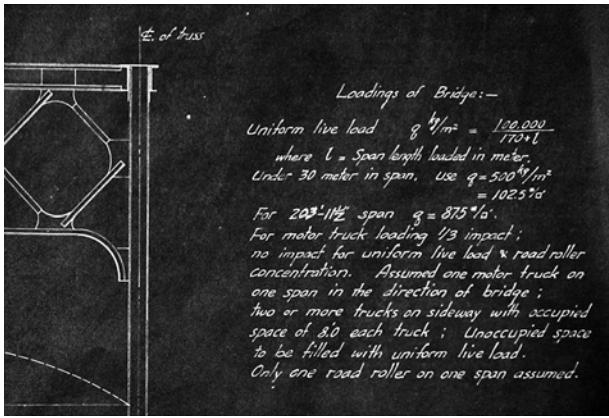 ℄ of truss
Loadings of Bridge:—
Uniform live load q kg/m² = 100.000 / 170+l
where l = Span length loaded in meter.
Under 30 meter in span, use q = 500 kg/m²
= 102.5 #/□'
For 203'-11½" span q = 87.5 #/□'.
For motor truck loading 1/3 impact ;
no impact for uniform live load & road roller
concentration. Assumed one motor truck on
one span in the direction of bridge ;
two or more trucks on sideway with occupied
space of 8.0 each truck ; Unoccupied space
to be filled with uniform live load.
Only one road roller on one span assumed.